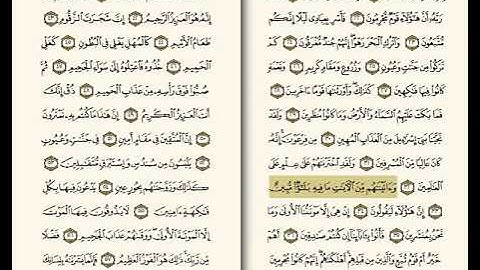 رَبَّهُۥٓ أَنَّ هَٰٓؤُلَآءِ قَوْمٌ مُّجْرِمُونَ ٢٢ فَأَسْرِ بِعِبَادِى لَيْلًا إِنَّكُم
مُّتَّبَعُونَ ٢٣ وَٱتْرُكِ ٱلْبَحْرَ رَهْوًا إِنَّهُمْ جُندٌ مُّغْرَقُونَ ٢٤ كَمْ
تَرَكُوا۟ مِن جَنَّٰتٍ وَعُيُونٍ ٢٥ وَزُرُوعٍ وَمَقَامٍ كَرِيمٍ ٢٦ وَنَعْمَةٍ
كَانُوا۟ فِيهَا فَٰكِهِينَ ٢٧ كَذَٰلِكَ وَأَوْرَثْنَٰهَا قَوْمًا ءَاخَرِينَ ٢٨
فَمَا بَكَتْ عَلَيْهِمُ ٱلسَّمَآءُ وَٱلْأَرْضُ وَمَا كَانُوا۟ مُنظَرِينَ ٢٩ وَلَقَدْ
نَجَّيْنَا بَنِىٓ إِسْرَٰٓءِيلَ مِنَ ٱلْعَذَابِ ٱلْمُهِينِ ٣٠ مِن فِرْعَوْنَ إِنَّهُۥ
كَانَ عَالِيًا مِّنَ ٱلْمُسْرِفِينَ ٣١ وَلَقَدِ ٱخْتَرْنَٰهُمْ عَلَىٰ عِلْمٍ عَلَى
ٱلْعَٰلَمِينَ ٣٢ وَءَاتَيْنَٰهُم مِّنَ ٱلْءَايَٰتِ مَا فِيهِ بَلَٰٓؤٌا۟ مُّبِينٌ
٣٣ إِنَّ هَٰٓؤُلَآءِ لَيَقُولُونَ ٣٤ إِنْ هِىَ إِلَّا مَوْتَتُنَا ٱلْأُولَىٰ وَمَا
نَحْنُ بِمُنشَرِينَ ٣٥ فَأْتُوا۟ بِـَٔابَآئِنَآ إِن كُنتُمْ صَٰدِقِينَ ٣٦ أَهُمْ
خَيْرٌ أَمْ قَوْمُ تُبَّعٍ وَٱلَّذِينَ مِن قَبْلِهِمْ أَهْلَكْنَٰهُمْ إِنَّهُمْ كَانُوا۟ مُجْرِمِينَ
إِنَّهُۥ هُوَ ٱلْعَزِيزُ ٱلرَّحِيمُ ٤٢ إِنَّ شَجَرَتَ ٱلزَّقُّومِ ٤٣
طَعَامُ ٱلْأَثِيمِ ٤٤ كَٱلْمُهْلِ يَغْلِى فِى ٱلْبُطُونِ ٤٥ كَغَلْىِ
ٱلْحَمِيمِ ٤٦ خُذُوهُ فَٱعْتِلُوهُ إِلَىٰ سَوَآءِ ٱلْجَحِيمِ ٤٧ ثُمَّ
صُبُّوا۟ فَوْقَ رَأْسِهِۦ مِنْ عَذَابِ ٱلْحَمِيمِ ٤٨ ذُقْ إِنَّكَ
أَنتَ ٱلْعَزِيزُ ٱلْكَرِيمُ ٤٩ إِنَّ هَٰذَا مَا كُنتُم بِهِۦ تَمْتَرُونَ
٥٠ إِنَّ ٱلْمُتَّقِينَ فِى مَقَامٍ أَمِينٍ ٥١ فِى جَنَّٰتٍ وَعُيُونٍ
٥٢ يَلْبَسُونَ مِن سُندُسٍ وَإِسْتَبْرَقٍ مُّتَقَٰبِلِينَ ٥٣
كَذَٰلِكَ وَزَوَّجْنَٰهُم بِحُورٍ عِينٍ ٥٤ يَدْعُونَ فِيهَا بِكُلِّ
فَٰكِهَةٍ ءَامِنِينَ ٥٥ لَا يَذُوقُونَ فِيهَا ٱلْمَوْتَ
إِلَّا ٱلْمَوْتَةَ ٱلْأُولَىٰ وَوَقَىٰهُمْ عَذَابَ ٱلْجَحِيمِ ٥٦ فَضْلًا
مِّن رَّبِّكَ ذَٰلِكَ هُوَ ٱلْفَوْزُ ٱلْعَظِيمُ ٥٧ فَإِنَّمَا يَسَّرْنَٰهُ بِلِسَانِكَ